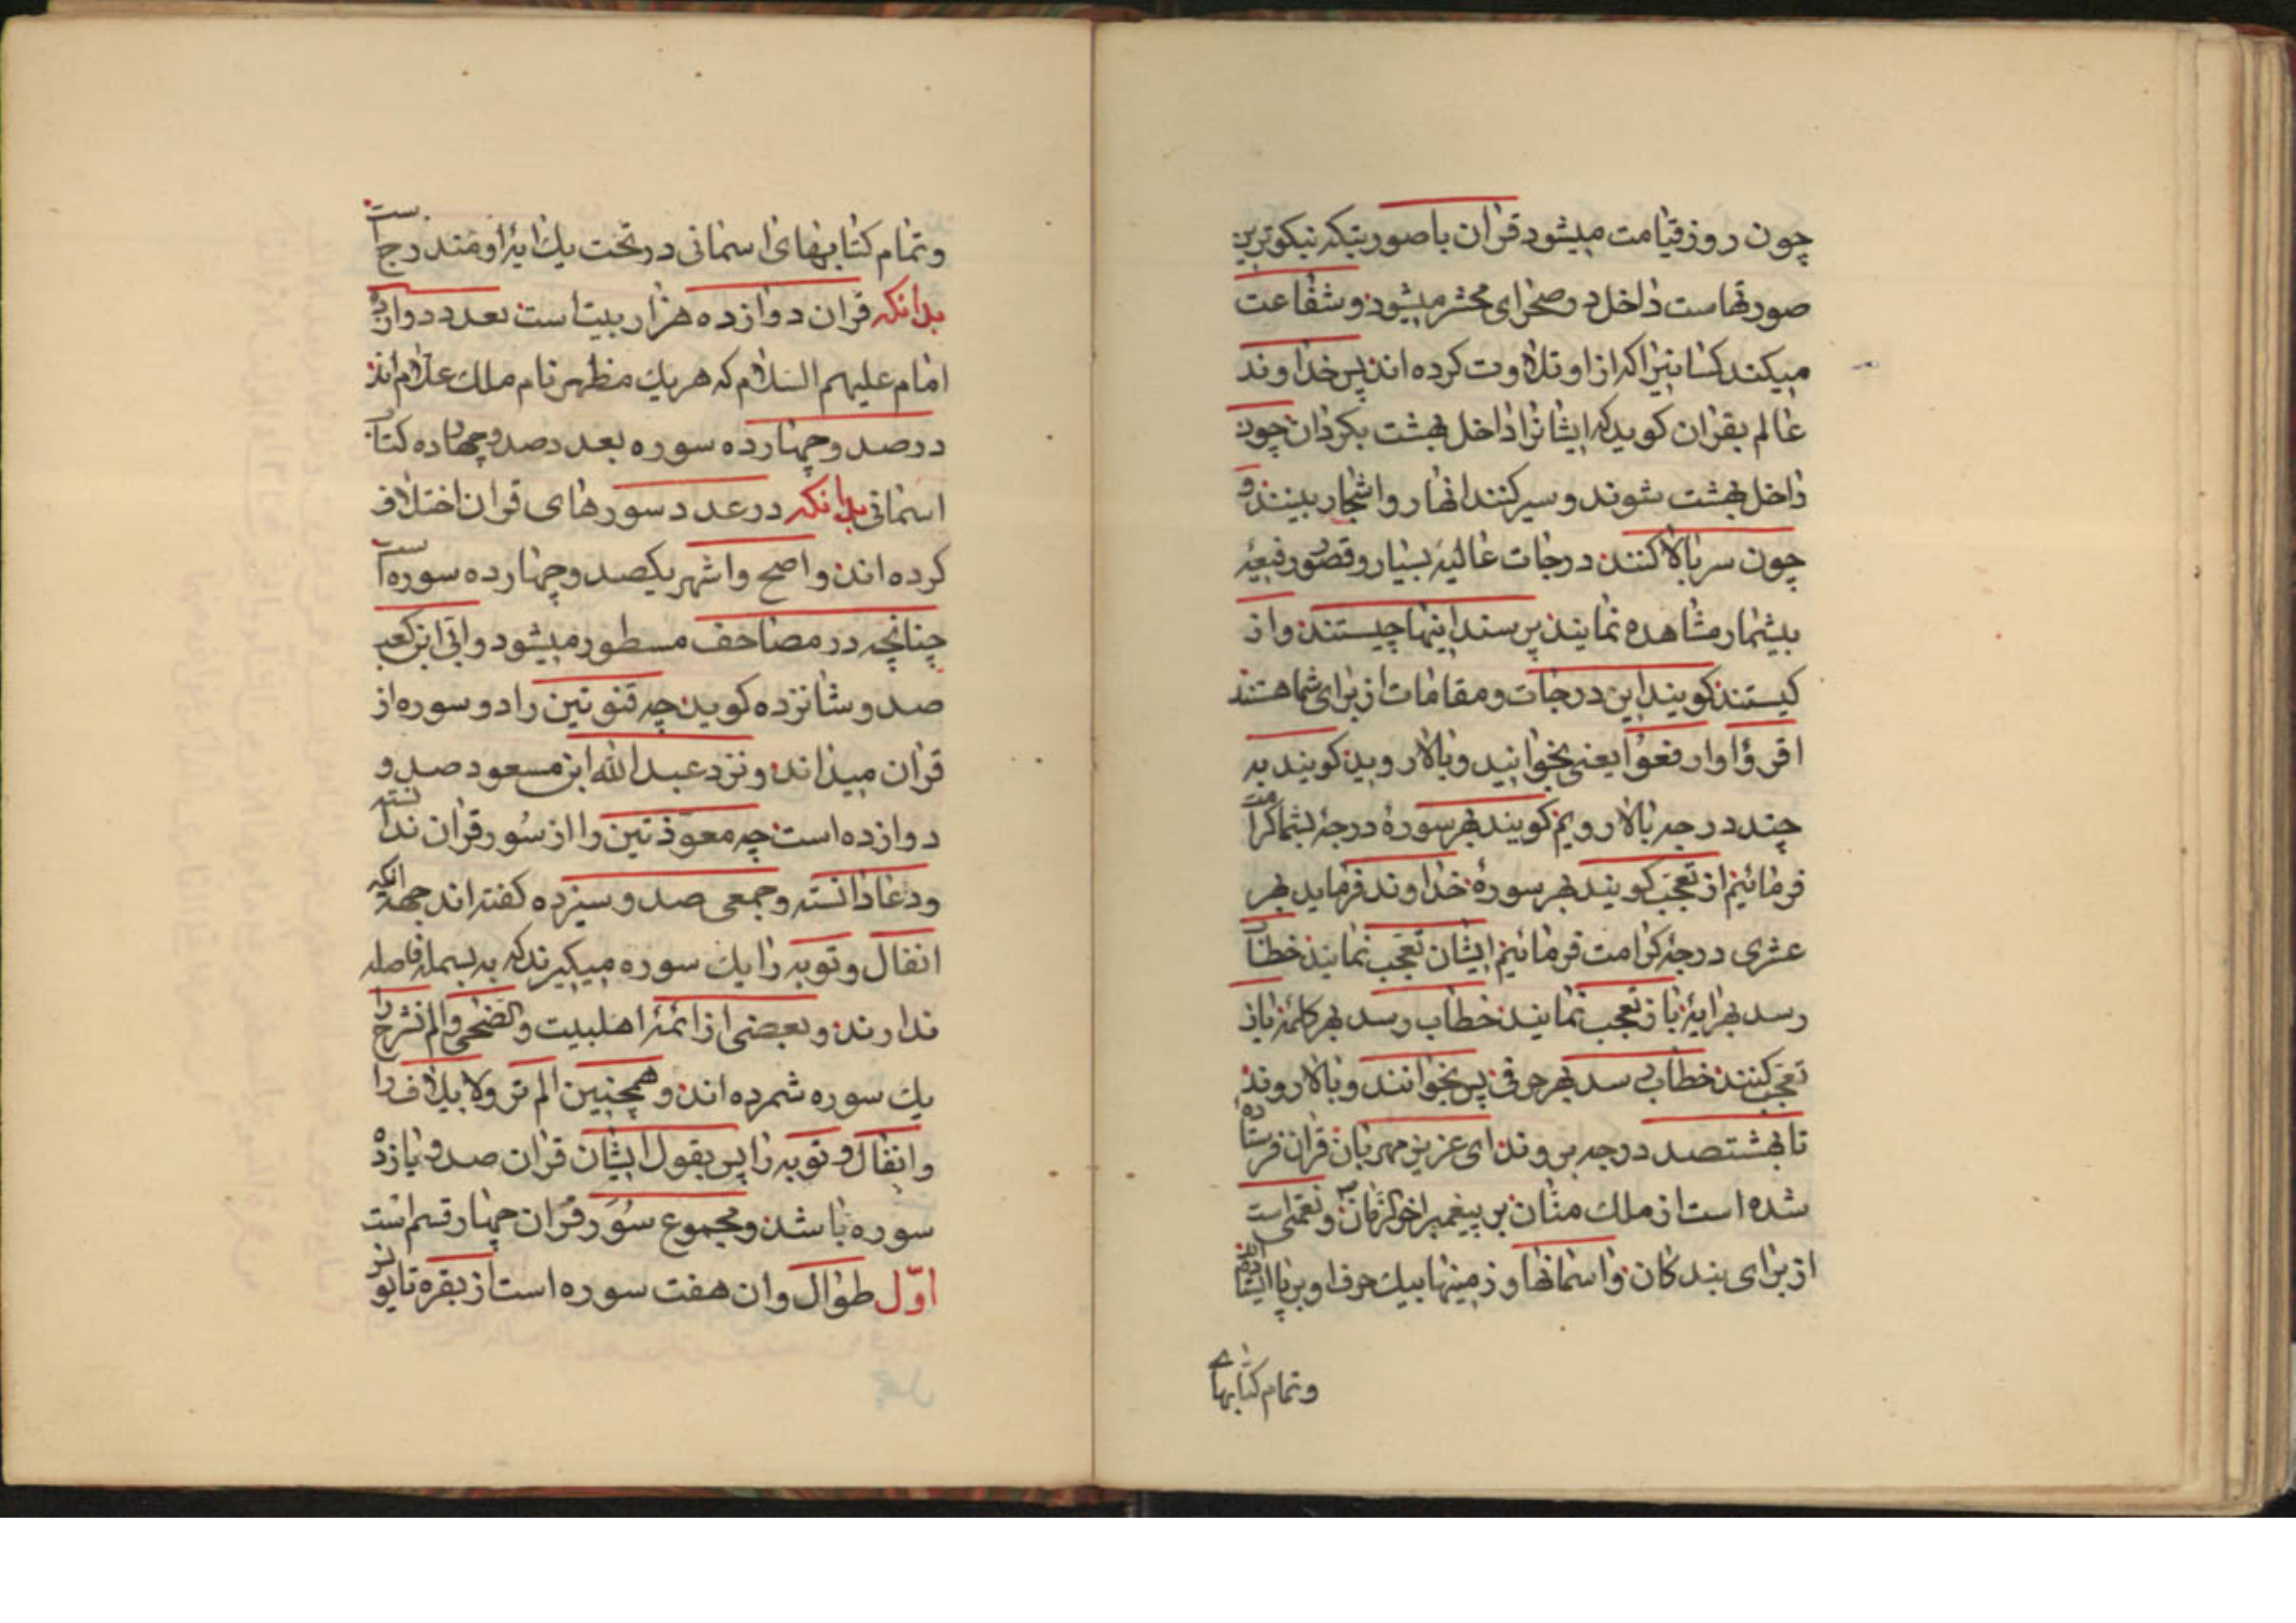 چون روز قیامت میشود قران با صورتیکه نیکوترین
صورتهاست داخل در صحرای محشر میشود و شفاعت
میکند کسانیرا که از او تلاوت کرده اند پس خداوند
عالم بقران کوید که ایشانرا داخل بهشت بکردان چون
داخل بهشت شوند و سیر کنند انهار و اشجار ببینند و
چون سر بالا کنند درجات عالیهٔ بسیار و قصور رفیعهٔ
بیشمار مشاهده نمایند پرسند اینها چیستند و از
کیستند کویند این درجات و مقامات از برای شما هستند
اقرؤا وارفعوا یعنی بخوانید و بالا روید کویند به
چند درجه بالا رویم کویند بهر سورهٔ درجهٔ بشما کرامت
فرمائیم از تعجب کویند بهر سورهٔ خداوند فرماید بهر
عشری درجهٔ کرامت فرمائیم ایشان تعجب نمایند خطاب
رسد بهر ایهٔ باز تعجب نمایند خطاب رسد بهر کلمهٔ باز
تعجب کنند خطاب رسد بهر حرفی پس بخوانند و بالا روند
تا بهشتصد درجه بروند ای عزیز مهربان قران فرستاده
شده است از ملک منان بر پیغمبر اخر الزمان و نعمتی است
از برای بندکان و اسمانها و زمینها بیک حرف او برپا ایستاده‌اند
و تمام کتابهای
و تمام کتابهای اسمانی در تحت یک ایهٔ او مندرج است
بدانکه قران دوازده هزار بیت است بعدد دوازده
امام علیهم السلام که هر یک مظهر نام ملک علام اند
در صد و چهارده سوره بعدد صد و چهارده کتاب
اسمانی بدانکه در عدد سورهای قران اختلاف
کرده اند و اصح و اشهر یکصد و چهارده سوره است
چنانچه در مصاحف مسطور میشود و ابی ابن کعب
صد و شانزده کوید چه قنوتین را دو سوره از
قران میداند و نزد عبد الله ابن مسعود صد و
دوازده است چه معوذتین را از سور قران ندانسته
و دعا دانسته و جمعی صد و سیزده کفته اند جهة انکه
انفال و توبه را یک سوره میکیرند که به بسمله فاصله
ندارند و بعضی از ائمهٔ اهلبیت والضحی و الم نشرح را
یک سوره شمرده اند و همچنین الم تر و لایلاف را
و انفال و توبه را پس بقول ایشان قران صد و یازده
سوره باشد و مجموع سور قران چهار قسم است
اوّل طوال و ان هفت سوره است از بقره تا یونس